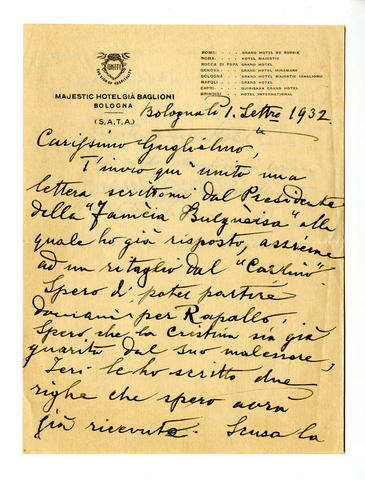 ROMA: GRAND HOTEL DE RUSSIE
ROMA: HOTEL MAJESTIC
ROCCA DI PAPA GRAND HOTEL
GENOVA: GRAND HOTEL MIRAMARE
BOLOGNA GRAND HOTEL MAJESTIC (BAGLIONI)
NAPOLI: GRAND HOTEL
CAPRI: QUISISANA GRAND HOTEL
BRINDISI: HOTEL INTERNATIONAL
MAJESTIC HOTEL GIÀ BAGLIONI
BOLOGNA
(S.A.T.A.)
Bologna li 1. Settre 1932.
Carissimo Guglielmo,
T'invio qui unito una
lettera scrittami dal Presidente
della "Famèia Bulgneisa" alla
quale ho già risposto, assieme
ad un ritaglio dal "Carlino".
Spero di poter partire
domani per Rapallo.
Spero che la Cristina sia già
guarita dal suo malessere,
Ieri le ho scritto due
righe che spero avrà
già ricevute. Scusa la